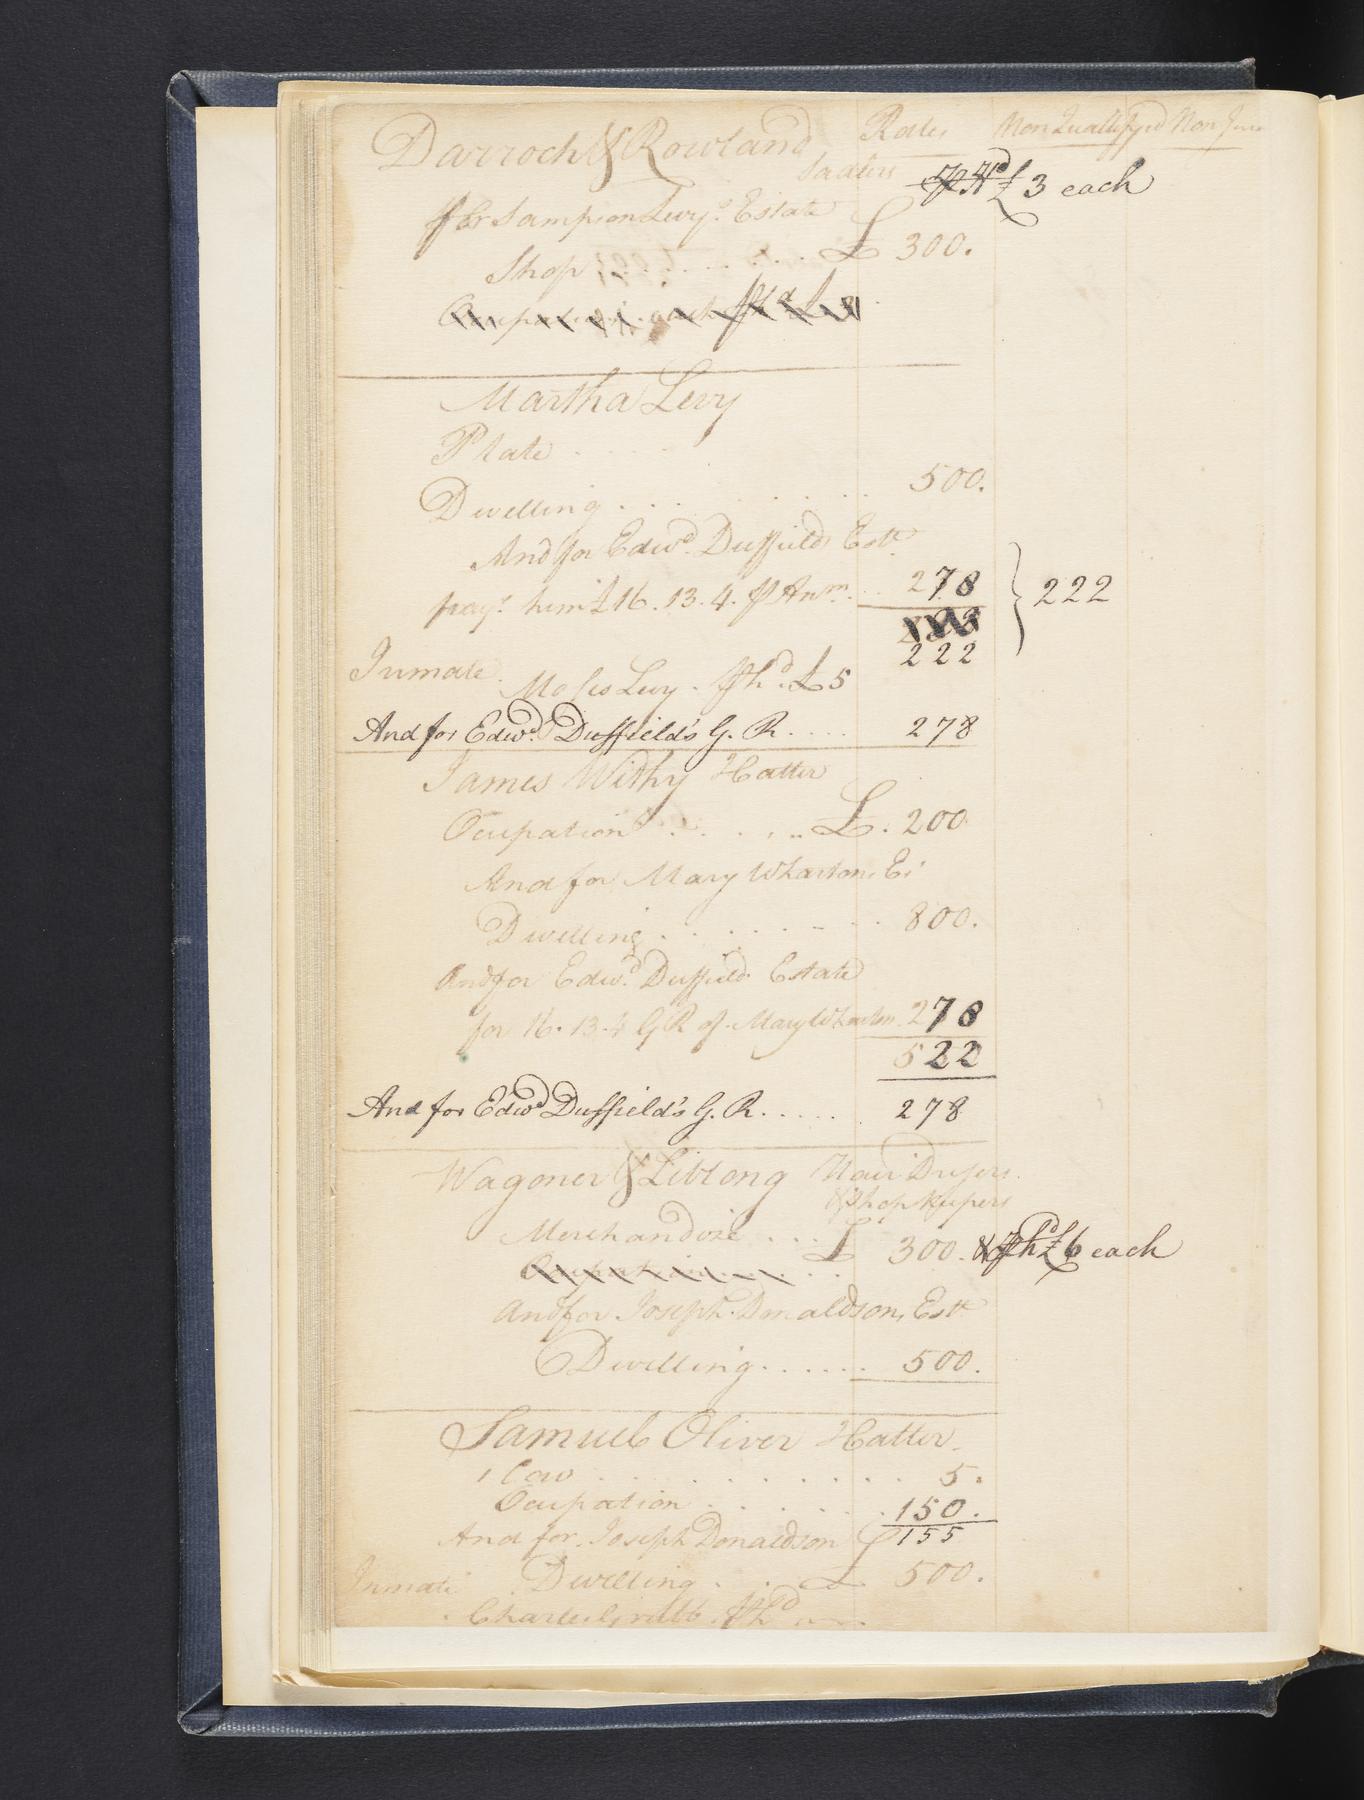 Darroch & Rowland Rates Non Quallifyed Non Jur
Sadlers ⅌ Hd £3 each
for Sampson Levys. Estate
Shop . . . . . . . . £ 300.
Martha Levy
Plate . . . .
Dwelling . . . . . . . 500.
And for Edwd. Duffields Estt.
payg. him £16. 13. 4. ⅌ Anm. . . 278 } 222
222
Inmate. Moses Levy . ⅌ hd. £5
And for Edwd. Duffield's G. R. . . . . 278
James Withy Hatter
Ocupation . . . . . £. 200
And for Mary Whartons Es
Dwelling . . . . . . . 800.
And for Edwd. Duffield Estate
for 16. 13. 4 G R of Mary Wharton 278
522
And for Edwd Duffield's G. R. . . . . . 278
Wagoner & Liblong Hair Dresers
& Shopkeepers
Merchandize . . . £ 300. & ⅌ hd £6 each
And for Joseph Donaldsons Estt
Dwelling . . . . . . 500.
Samuel Oliver Hatter.
1 Cow . . . . . . . . . . 5.
Ocupation . . . . . 150.
And for Joseph Donaldson £155
Inmate Dwelling . . £ 500.
Charles Grubb. ⅌ hd